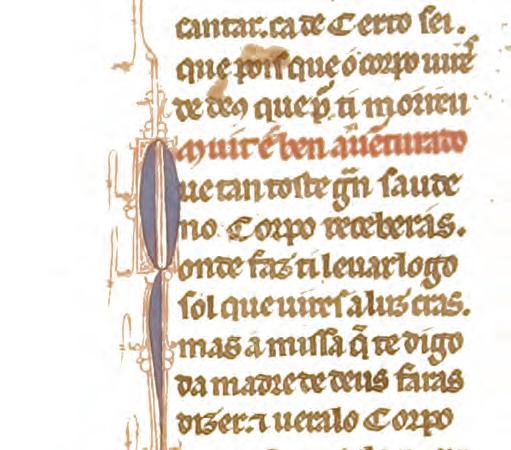 cantar. ca de Certo sei.
que pois que o corpo uiire
de de9 que p̃ ti morreu
Muit é ben auẽturado
ue tan toste grã saude
no Corpo receberás.
onde faz ti leuar logo
sol que uires a luz cras.
mas a missa q̃ te digo
da madre de deus faras
dizer. ⁊ ueralo Corpo